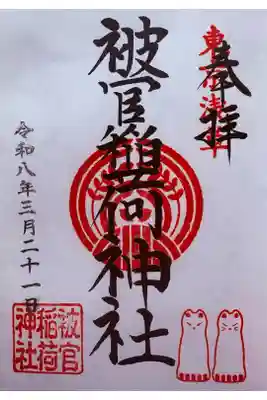 東京浅草
奉拝
被官稲荷神社
令和八年三月二十一日
被官
稲荷
神社